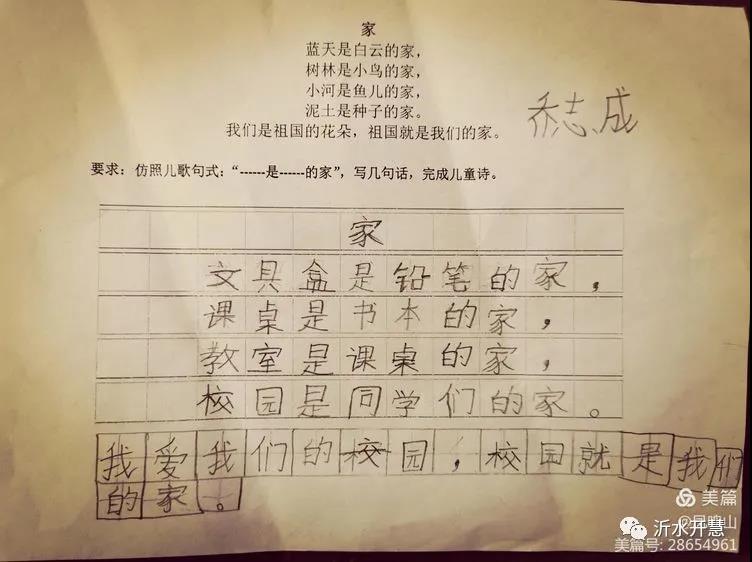 家
蓝天是白云的家，
树林是小鸟的家，
小河是鱼儿的家，
泥土是种子的家。
我们是祖国的花朵，祖国就是我们的家。
乔志成
要求：仿照儿歌句式：“------是------的家”，写几句话，完成儿童诗。
家
文具盒是铅笔的家，
课桌是书本的家，
教室是课桌的家，
校园是同学们的家。
我爱我们的校园，校园就是我们
的家。
美篇
沂水开慧
美篇号: 28654961